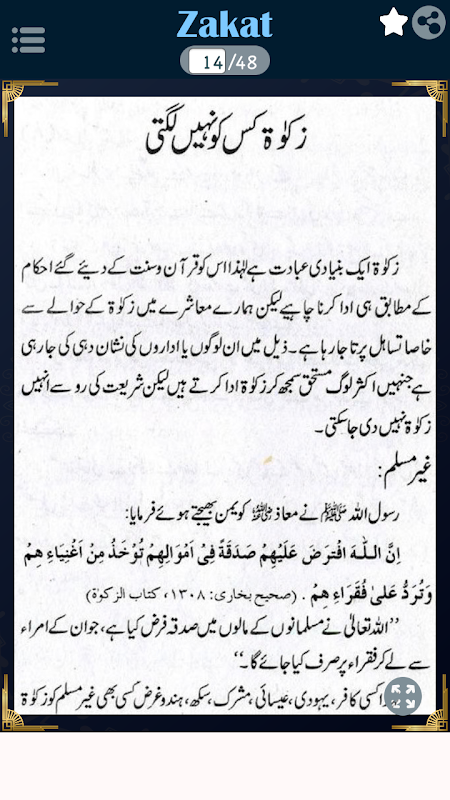 Zakat
14/48
زکوٰۃ کس کو نہیں لگتی
زکوٰۃ ایک بنیادی عبادت ہے لہٰذا اس کو قرآن وسنت کے دیئے گئے احکام
کے مطابق ہی ادا کرنا چاہیے لیکن ہمارے معاشرے میں زکوٰۃ کے حوالے سے
خاصا تساہل برتا جا رہا ہے۔ ذیل میں ان لوگوں یا اداروں کی نشان دہی کی جا رہی
ہے جنہیں اکثر لوگ مستحق سمجھ کر زکوٰۃ ادا کرتے ہیں لیکن شریعت کی رو سے انہیں
زکوٰۃ نہیں دی جا سکتی۔
غیر مسلم:
رسول اللہ ﷺ نے معاذ کو یمن بھیجتے ہوئے فرمایا:
اِنَّ اللّٰهَ افْتَرَضَ عَلَيْهِمْ صَدَقَةً فِىْ اَمْوَالِهِمْ تُوْخَذُ مِنْ اَغْنِيَاءِ هِمْ
وَتُرَدُّ عَلىٰ فُقَرَاءِ هِمْ . (صحیح بخاری: ۱۳۰۸، کتاب الزکوٰۃ)
’’اللہ تعالیٰ نے مسلمانوں کے مالوں میں صدقہ فرض کیا ہے، جو ان کے امراء
سے لے کر فقراء پر صرف کیا جائے گا۔‘‘
کسی کافر، یہودی، عیسائی، مشرک، سکھ، ہندو غرض کسی بھی غیر مسلم کو زکوٰۃ